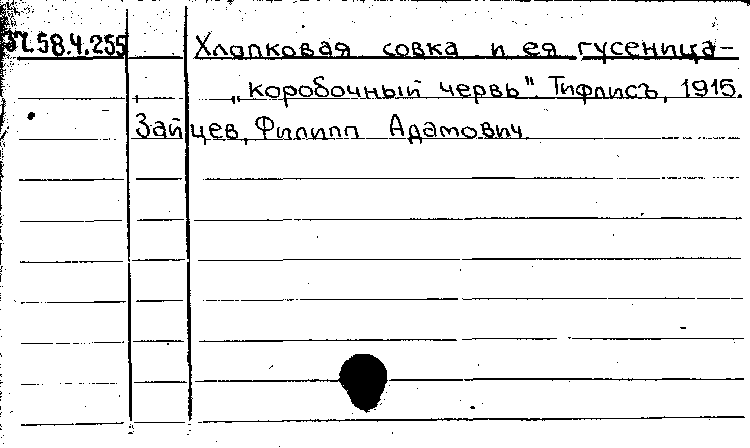 37.58.4.255 Хлопковая совка и ея гусеница-
„коробочный червь". Тифлисъ, 1915.
Зайцев, Филипп Адамович